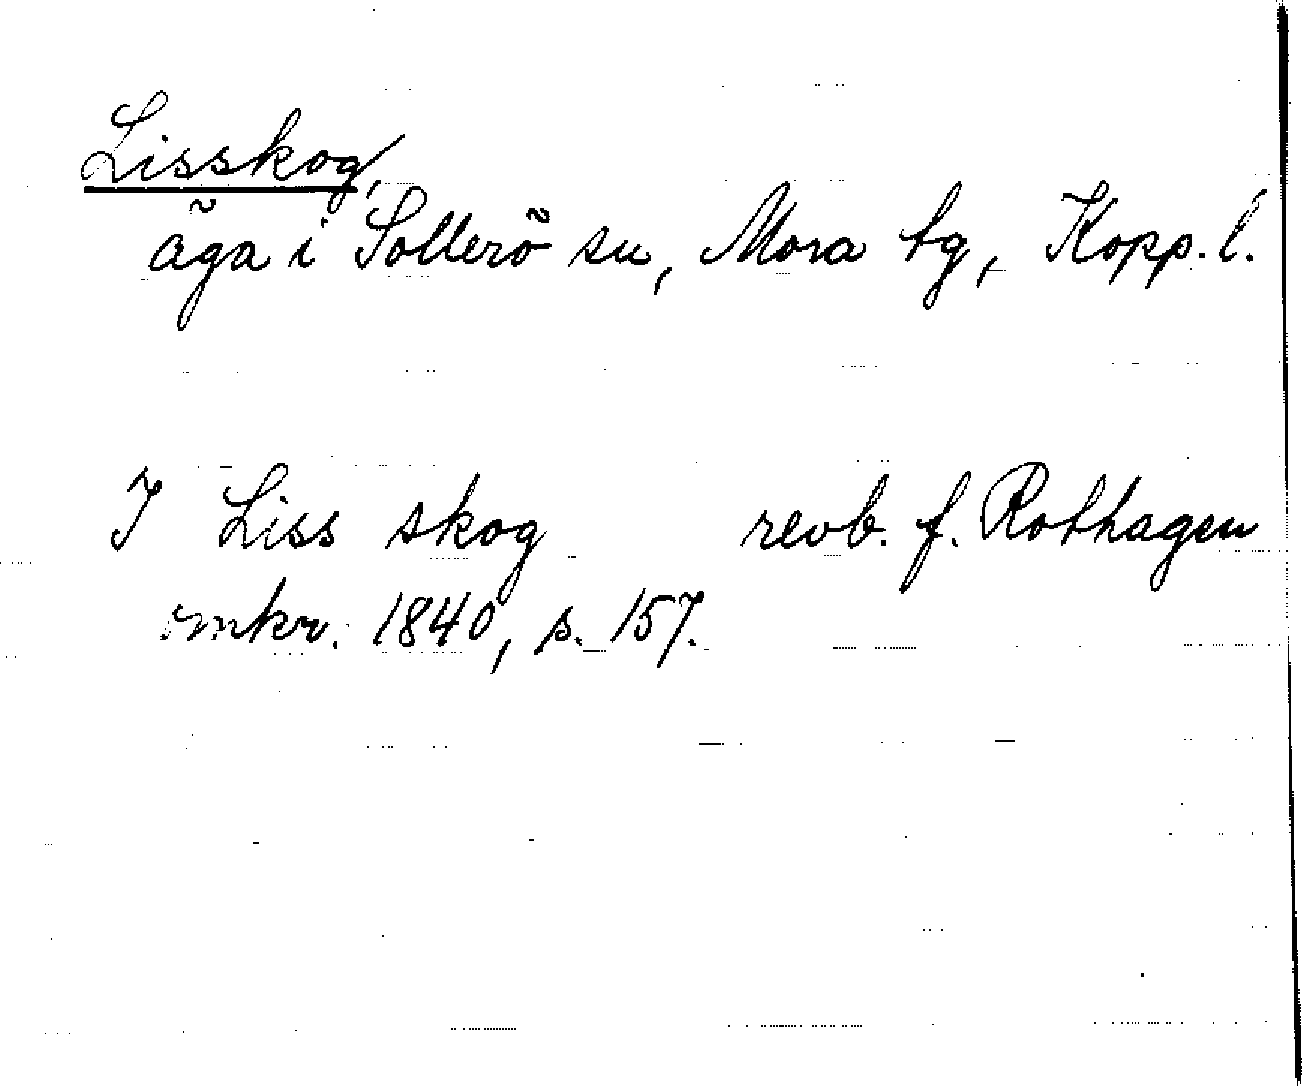 Lisskog,
äga i Sollerö sn, Mora tg, Kopp. l.
I Liss skog revb. f. Rothagen
omkr. 1840, s. 157.